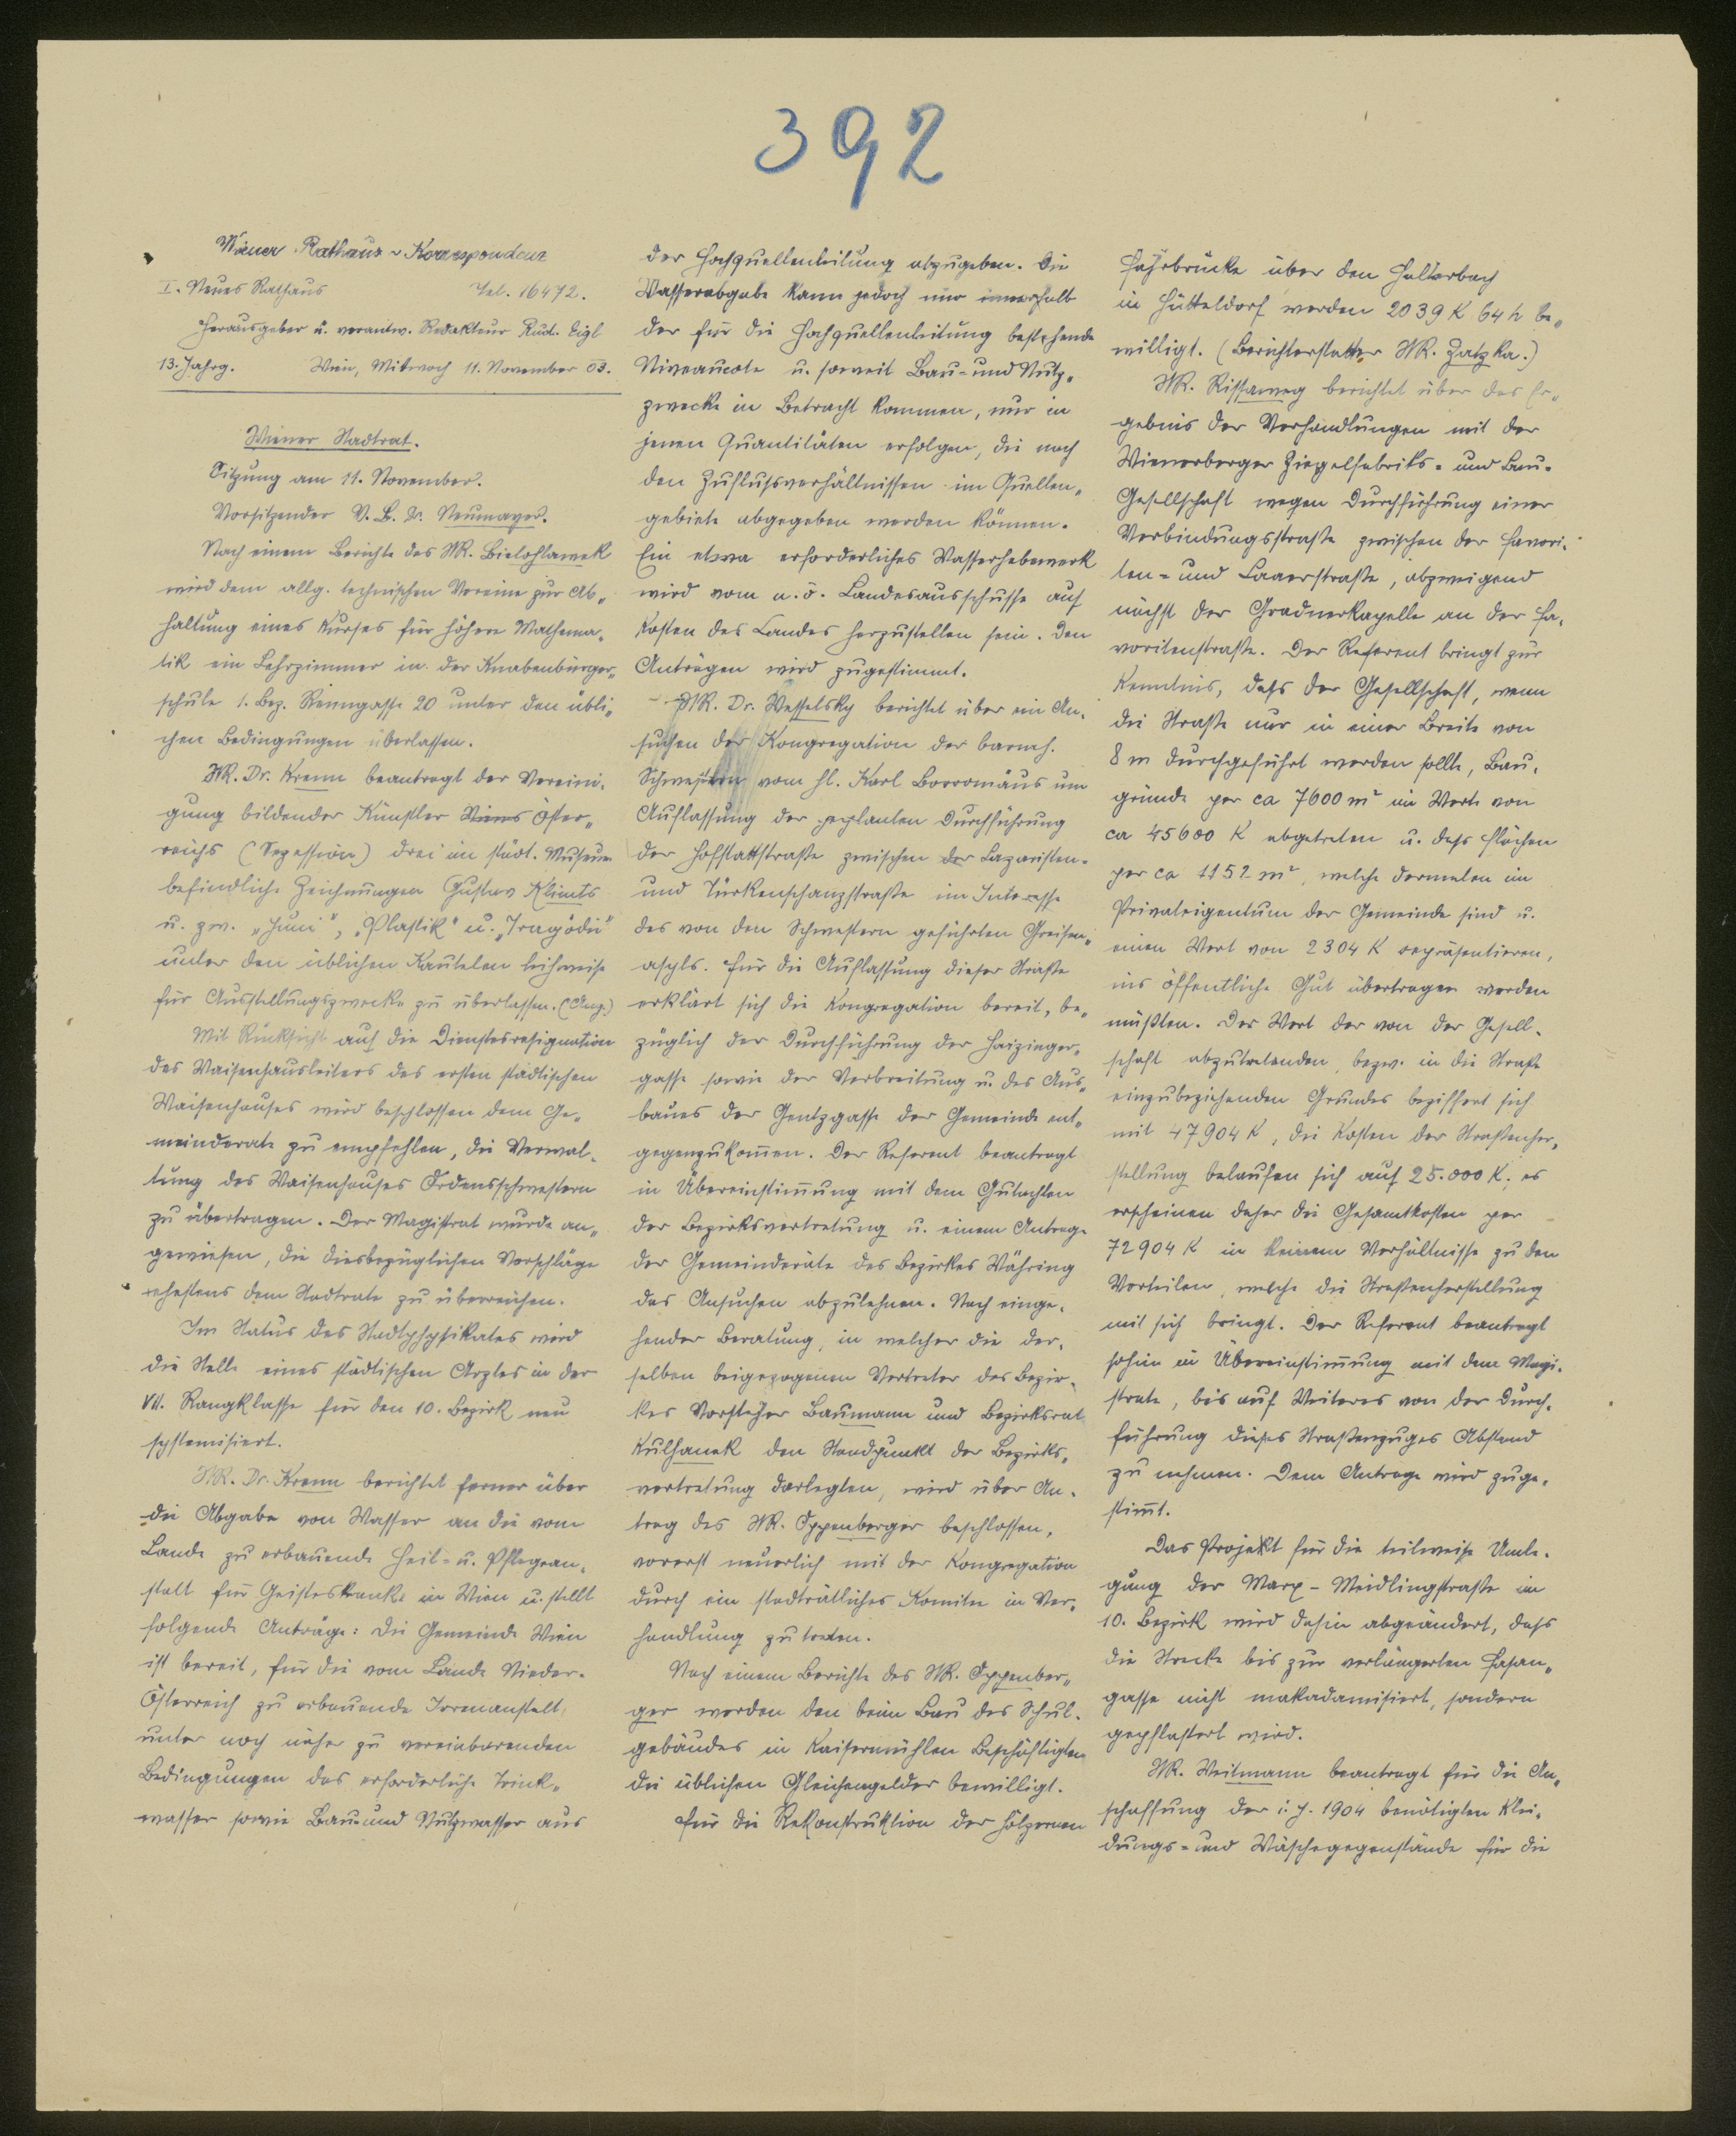 392
Wiener Rathaus-Korrespondenz
I. Neues Rathaus Tel. 16472.
Herausgeber u. verantw. Redakteur Rud. Eigl
13. Jahrg. Wien, Mittwoch 11. November 03.
Wiener Stadtrat.
Sitzung am 11. November.
Vorsitzender V. B. Dr. Neumayer.
Nach einem Berichte des StR. Bielohlawek
wird dem allg. technischen Vereine zur Ab„
haltung eines Kurses für höhere Mathema„
tik ein Lehrzimmer in der Knabenbürger„
schule 1. Bez. Renngasse 20 unter den übli„
chen Bedingungen überlassen.
StR. Dr. Krenn beantragt der Vereini„
gung bildender Künstler Wiens Öster„
reichs (Sezession) drei im städt. Museum
befindliche Zeichnungen Gustav Klimts
u. zw. „Juni", „Plastik" u. „Tragödie"
unter den üblichen Kautelen leihweise
für Ausstellungszwecke zu überlassen. (Ang.)
Mit Rücksicht auf die Dienstesresignation
des Waisenhausleiters des ersten städtischen
Waisenhauses wird beschlossen dem Ge„
meinderate zu empfehlen, die Verwal„
tung des Waisenhauses Ordensschwestern
zu übertragen. Der Magistrat wurde an„
gewiesen, die diesbezüglichen Vorschläge
ehestens dem Stadtrate zu überreichen.
Im Status des Stadtphysikates wird
die Stelle eines städtischen Arztes in der
VII. Rangklasse für den 10. Bezirk neu
systemisiert.
StR. Dr. Krenn berichtet ferner über
die Abgabe von Wasser an die vom
Lande zu erbauende Heil- u. Pflegean„
stalt für Geisteskranke in Wien u. stellt
folgende Anträge: Die Gemeinde Wien
ist bereit, für die vom Lande Nieder-
Österreich zu erbauende Irrenanstalt,
unter noch näher zu vereinbarenden
Bedingungen das erforderliche Trink„
wasser sowie Bau- und Nutzwasser aus
der Hochquellenleitung abzugeben. Die
Wasserabgabe kann jedoch nur innerhalb
der für die Hochquellenleitung bestehende
Niveaucote u. soweit Bau- und Nutz„
zwecke in Betracht kommen, nur in
jenen Quantitäten erfolgen, die nach
den Zuflußverhältnissen im Quellen„
gebiete abgegeben werden können.
Ein etwa erforderliches Wasserhebewerk
wird vom n. ö. Landesausschusse auf
Kosten des Landes herzustellen sein. Den
Anträgen wird zugestimmt.
StR. Dr. Wesselsky berichtet über ein An„
suchen der Kongregation der barmh.
Schwestern vom hl. Karl Borromäus um
Auflassung der geplanten Durchführung
der Hofstattstraße zwischen der Lazaristen-
und Türkenschanzstraße im Interesse
des von den Schwestern geführten Greisen„
asyls. Für die Auflassung dieser Straße
erklärt sich die Kongregation bereit, be„
züglich der Durchführung der Haizinger„
gasse sowie der Verbreitung u. des Aus„
baues der Gentzgasse der Gemeinde ent„
gegenzukom̄en. Der Referent beantragt
in Übereinstim̄ung mit dem Gutachten
der Bezirksvertretung u. einem Antrage
der Gemeinderäte des Bezirkes Währing
das Ansuchen abzulehnen. Nach einge„
hender Beratung, in welcher die der„
selben beigezogenen Vertreter des Bezir„
kes Vorsteher Baumann und Bezirksrat
Kulhanek den Standpunkt der Bezirks„
vertretung darlegten, wird über An„
trag des StR. Oppenberger beschlossen,
vorerst neuerlich mit der Kongregation
durch ein stadträtliches Komitee in Ver„
handlung zu treten.
Nach einem Berichte des StR. Oppenber„
ger werden den beim Bau des Schul„
gebäudes in Kaisermühlen Beschäftigten
die üblichen Gleichengelder bewilligt.
Für die Rekonstruktion der hölzernen
Fahrbrücke über den Halterbach
in Hütteldorf werden 2039 K 64 h be„
willigt. (Berichterstatter StR. Zatzka.)
StR. Rissaweg berichtet über das Er„
gebnis der Verhandlungen mit der
Wienerberger Ziegelfabriks- und Bau-
Gesellschaft wegen Durchführung einer
Verbindungsstraße zwischen der Favori„
ten- und Laaerstraße, abzweigend
nächst der Gradnerkapelle an der Fa„
voritenstraße. Der Referent bringt zur
Kenntnis, daß der Gesellschaft, wenn
die Straße nur in einer Breite von
8 m durchgeführt werden sollte, Bau„
gründe per ca 7600 m² im Werte von
ca 45600 K abgetreten u. daß Flächen
per ca 1152 m², welche dermalen im
Privateigentum der Gemeinde sind u.
einen Wert von 2304 K repräsentieren,
ins öffentliche Gut übertragen werden
müßten. Der Wert der von der Gesell„
schaft abzutretenden, bezw. in die Straße
einzubeziehenden Grundes beziffert sich
mit 47904 K, die Kosten der Straßenher„
stellung belaufen sich auf 25.000 K; es
erscheinen daher die Gesamtkosten per
72904 K in keinem Verhältnisse zu den
Vorteilen, welche die Straßenherstellung
mit sich bringt. Der Referent beantragt
sohin in Übereinstim̄ung mit dem Magi„
strate, bis auf Weiteres von der Durch„
führung dieses Straßenzuges Abstand
zu nehmen. Dem Antrage wird zuge„
stim̄t.
Das Projekt für die teilweise Umle„
gung der Marx-Meidlingstraße im
10. Bezirk wird dahin abgeändert, daß
die Strecke bis zur verlängerten Fasan„
gasse nicht makadamisiert, sondern
gepflastert wird.
StR. Weitmann beantragt für die An„
schaffung der i. J. 1904 benötigten Klei„
dungs- und Wäschegegenstände für die